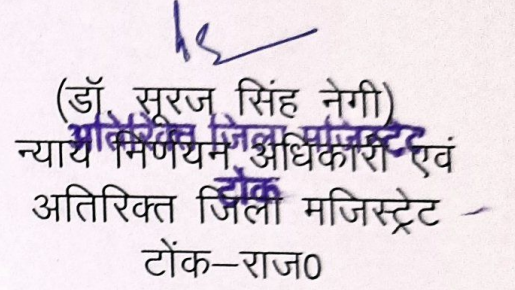 (डॉ सूरज सिंह नेगी)
अतिरिक्त जिला मजिस्ट्रेट
न्याय निर्णयन अधिकारी एवं
टोंक
अतिरिक्त जिला मजिस्ट्रेट
टोंक–राज0